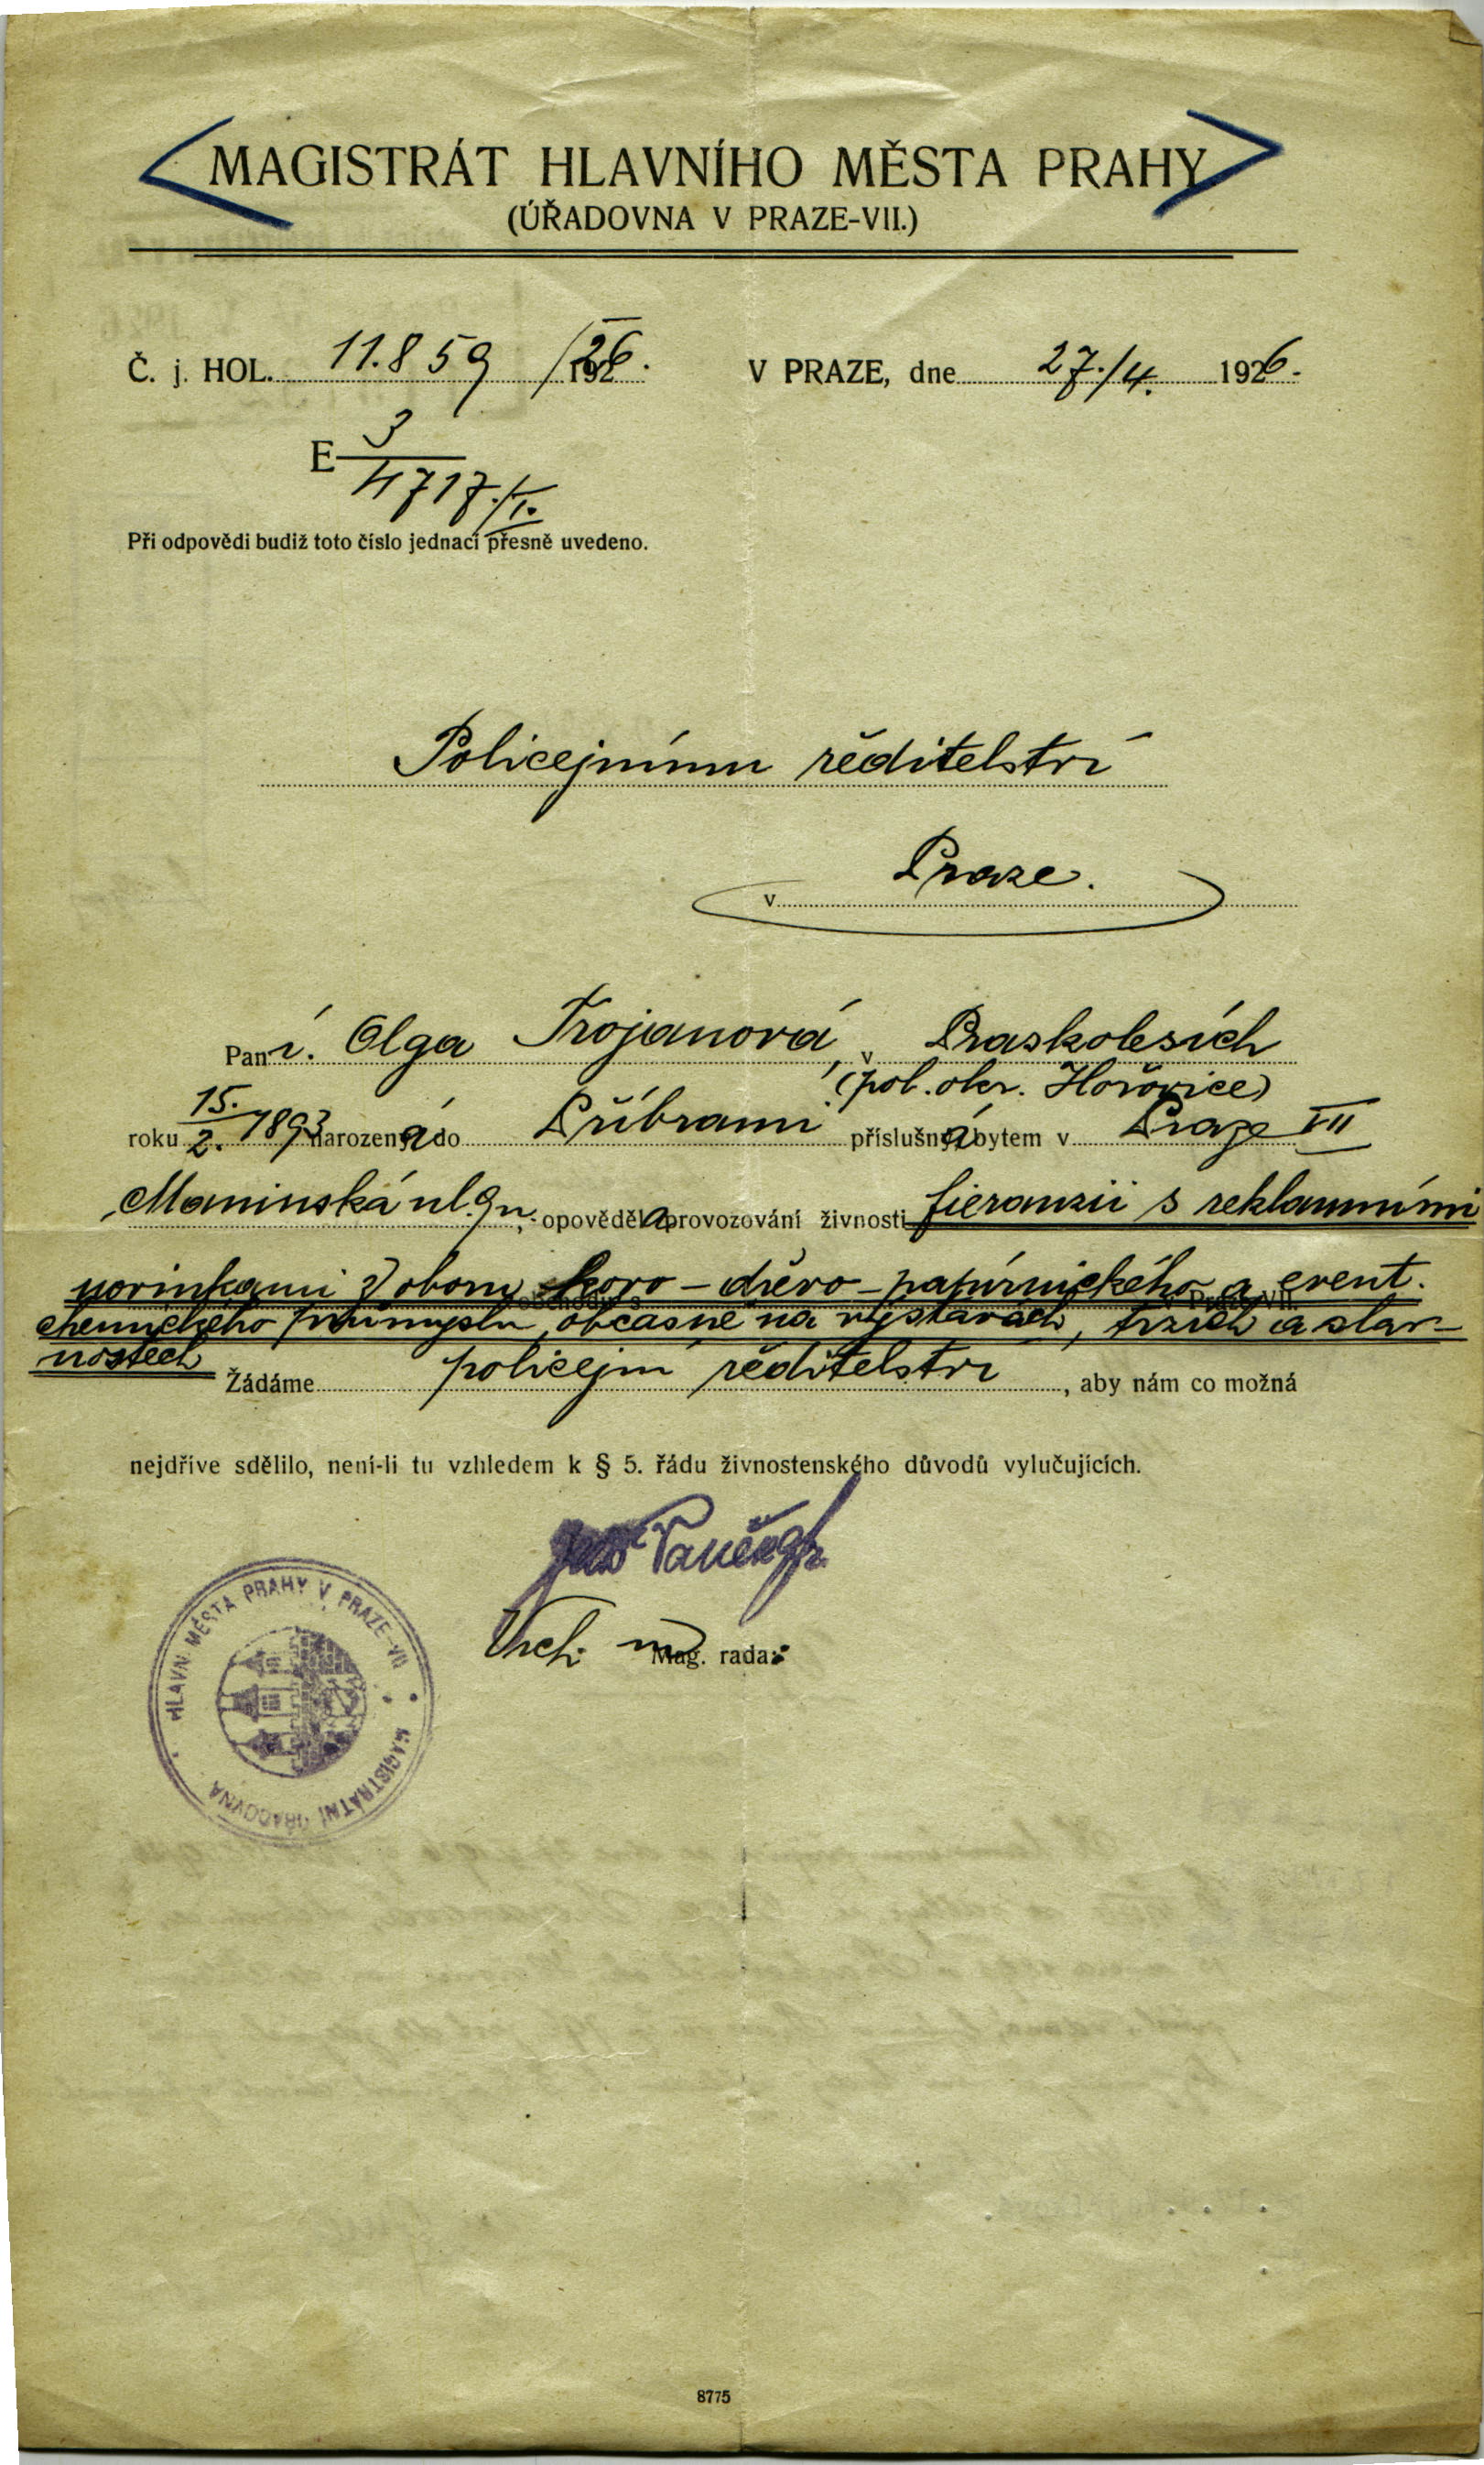 MAGISTRÁT HLAVNÍHO MĚSTA PRAHY
(ÚŘADOVNA V PRAZE-VII.)
Č. j. HOL. 11.859 /26. V PRAZE, dne 27./4. 1926.
E 3
4717./I.
Při odpovědi budiž toto číslo jednací přesně uvedeno.
Policejnímu ředitelství
v Praze.
Paní. Olga Trojanová, v Praskolesích
(pol. okr. Hořovice)
roku 15./2. 1893 narozená do Příbrami příslušná bytem v Praze VII
Maninská ul. 9 n. opověděla provozování živnosti fieranzii s reklamními
novinkami z oboru kovo-dřevo-papírnického a event.
chemického průmyslu, občasně na výstavách, trzích a slav-
nostech
Žádáme policejní ředitelství, aby nám co možná
nejdříve sdělilo, není-li tu vzhledem k § 5. řádu živnostenského důvodů vylučujících.
Vrch. m Mag. rada:
HLAVNÍ MĚSTA PRAHY V PRAZE-VII
MAGISTRÁTNÍ ÚŘADOVNA
8775